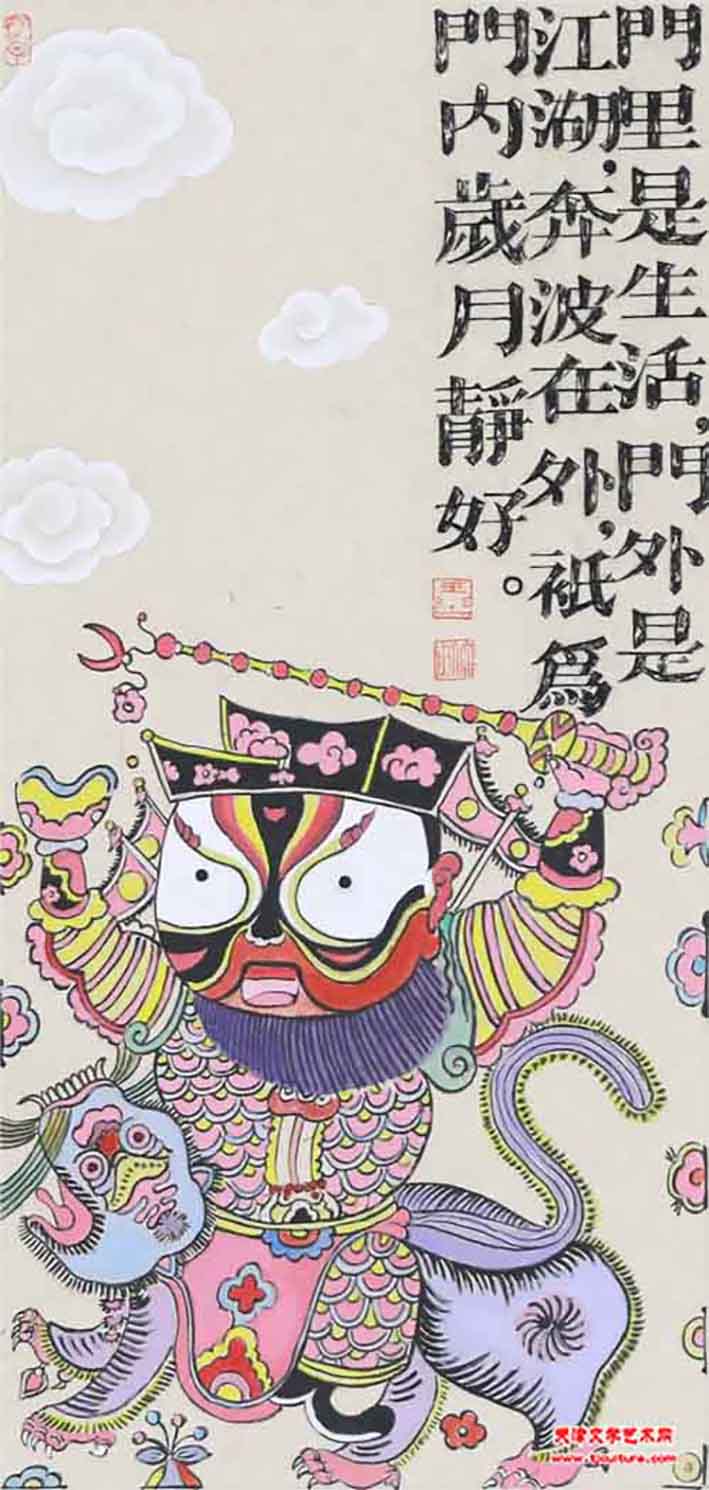 門里是生活，門外是
江湖，奔波在外，祇為
門内歲月靜好。
天津文学艺术网
www.tjculture.com